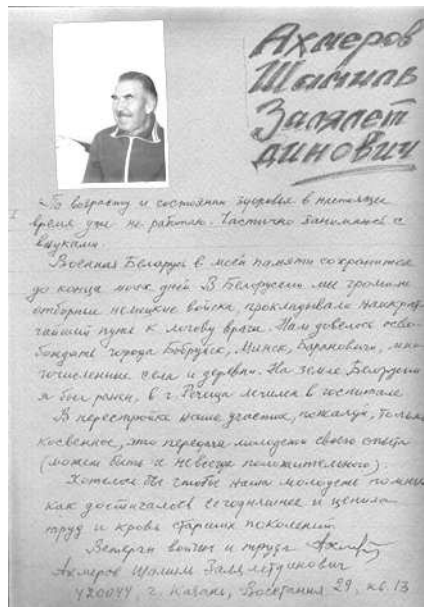 Ахмеров
Шамиль
Залялет
динович
По возрасту и состоянию здоровья в настоящее
время уже не работаю. Частично занимаюсь с
внуками.
Военная Беларусь в моей памяти сохранится
до конца моих дней. В Белоруссии мы громили
отборные немецкие войска, прокладывали наикрат-
чайший путь к логову врага. Нам довелось осво-
бождать города Бобруйск, Минск, Барановичи, мно-
гочисленные села и деревни. На земле Белоруссии
я был ранен, в г. Речица лечился в госпитале
В перестройке наше участие, пожалуй, только
косвенное, это передача молодежи своего опыта
(может быть и не всегда положительного).
Хотелось бы чтобы наша молодежь помнила
как досталось сегодняшнее и ценила
труд и кровь старших поколений
Ветеран войны и труда
Ахмеров Шамиль Залялетдинович
420044, г. Казань, Восстания 29, кв. 13